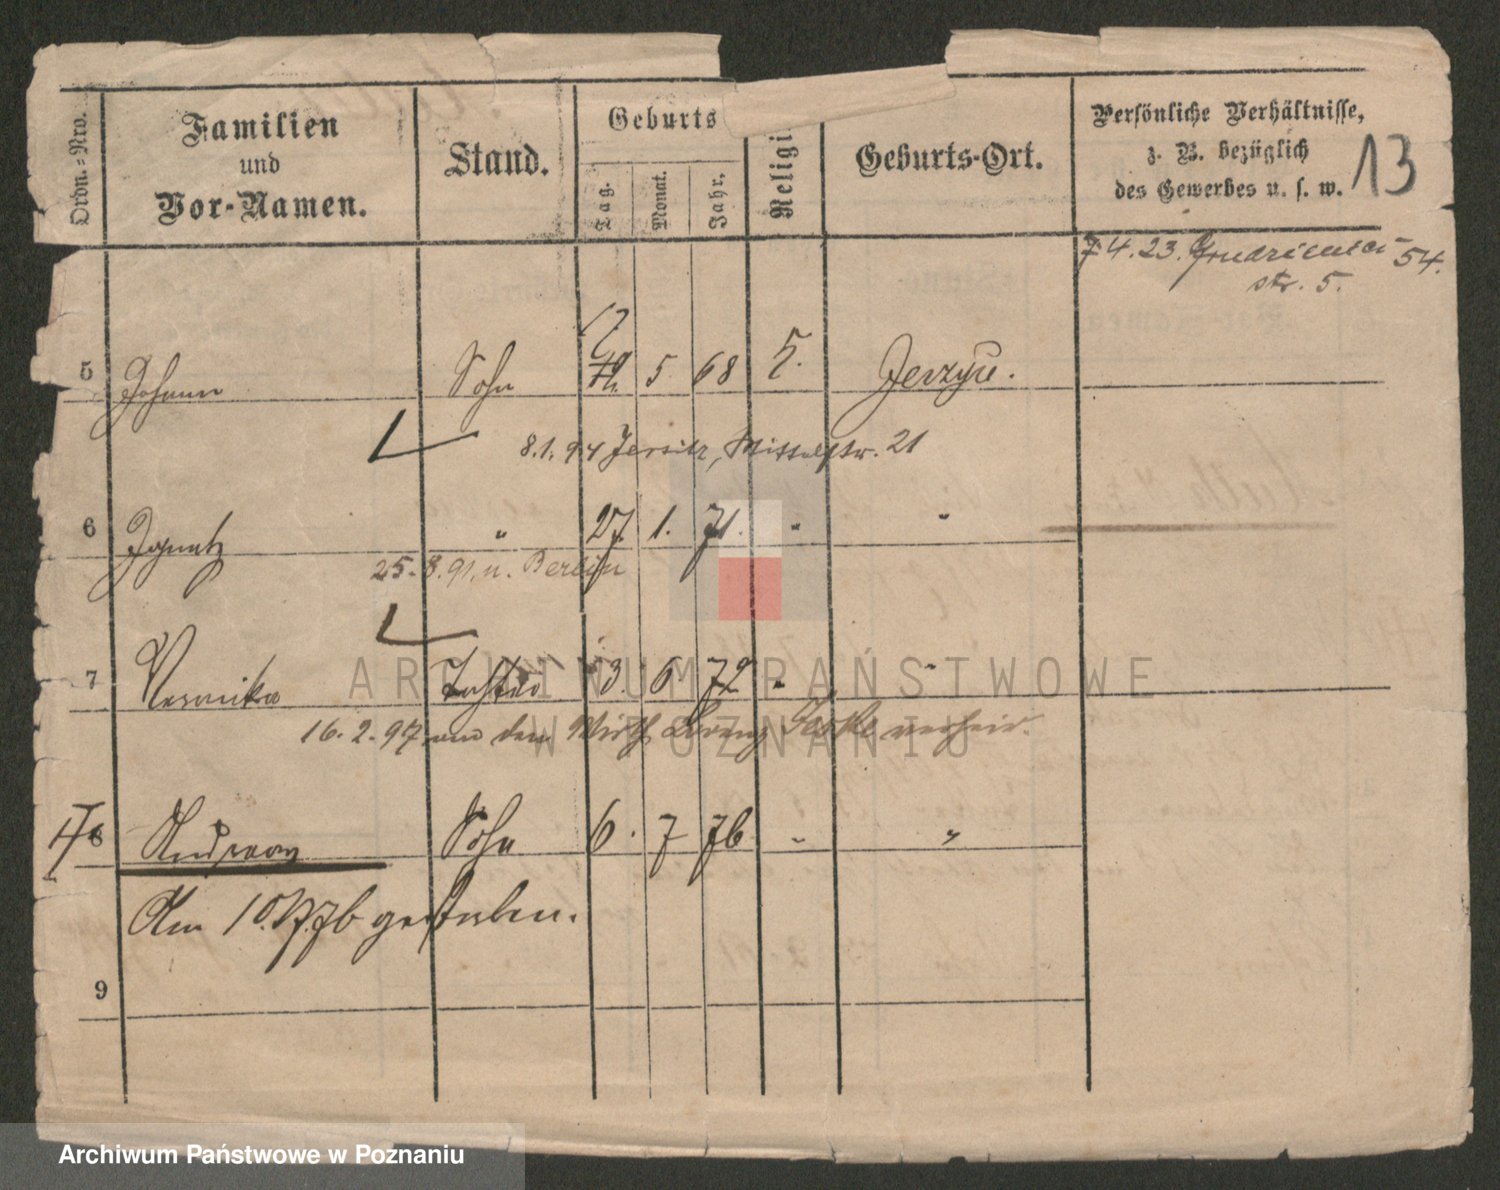 Ordn.-Nro.
Familien
und
Vor-Namen.
Stand.
Geburts
Tag.
Monat.
Jahr.
Religi
Geburts-Ort.
Persönliche Verhältnisse,
z. B. bezüglich
des Gewerbes u. s. w.
13
74.23.
54.
str. 5.
5 Johann Sohn 5 68 k. Jerzyce.
8.1.94 Jersitz, Mittelstr. 21
6 Ignatz " 27. 1. 71. " "
25.8.91. n. Berlin
7 Veronika Tochter 3. 6 72 " "
16.2.97 dem Wirth verheir.
8 Andreas Sohn 6. 7 76 " "
Am 10.7.76 gestorben.
9
ARCHIWUM PAŃSTWOWE
W POZNANIU
Archiwum Państwowe w Poznaniu